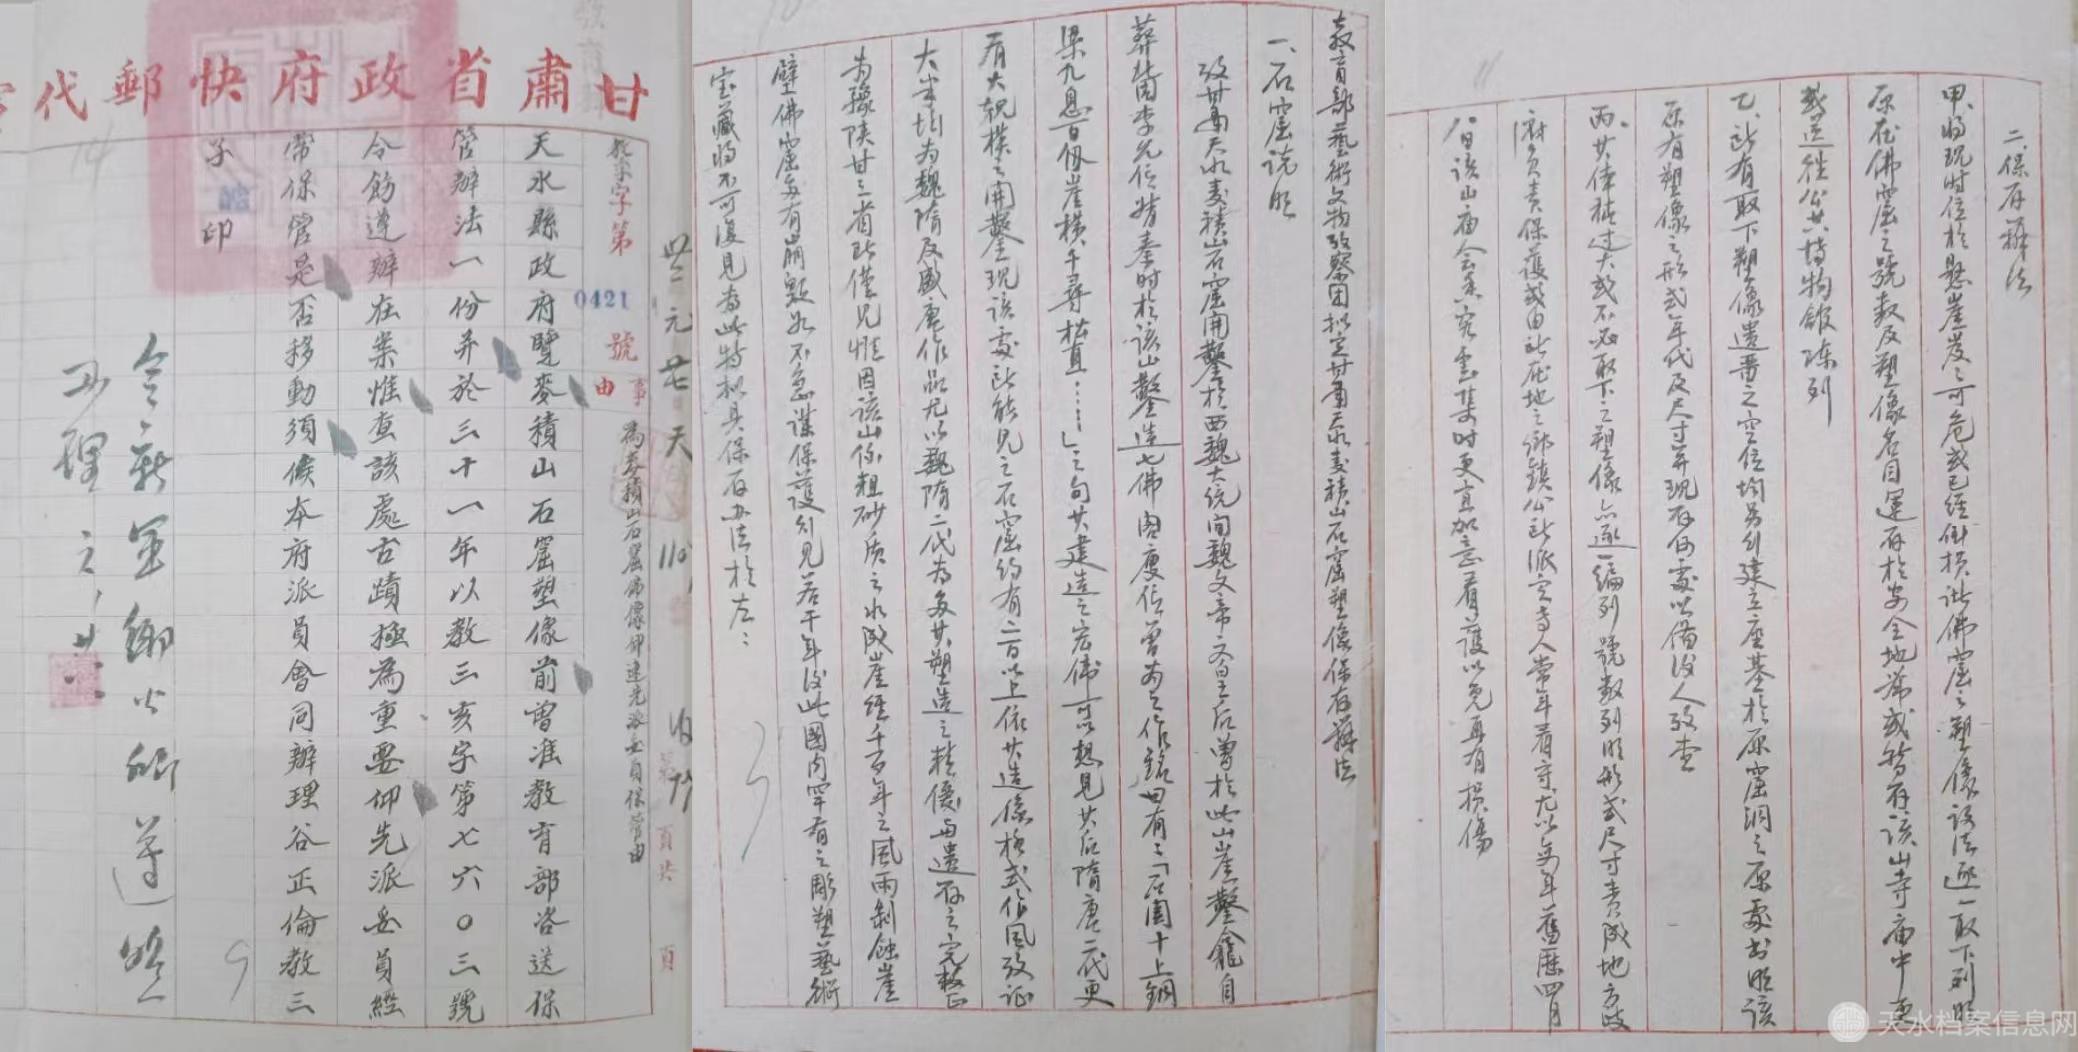 甘肅省政府快郵代
教
字第
0421
號
事
由
為麥積山石窟佛像仰速先派妥員保管由
天水縣政府覽麥積山石窟塑像前曾准教育部咨送保
管辦法一份并於三十一年以教三亥字第七六〇三號
令飭遵辦在案惟查該處古蹟極為重要仰先派妥員經
常保管是否移動須候本府派員會同辦理谷正倫教三
子印
教育部藝術文物攷察團擬定甘肅天水麥積山石窟塑像保存辦法
一、石窟說明
攷甘肅天水麥積山石窟開鑿於西魏大統間魏文帝文皇后曾於此山崖鑿龕自
葬嗣李允信於秦時於該山鑿造七佛閣庾信曾為之作銘曰有「石閣十上銅
梁九息百仞崖橫千尋松直……」之句其建造之宏偉可以想見其后隋唐二代更
有大規模之開鑿現該處所能見之石窟約有二百以上依其造像格式作風攷証
大半均為魏隋及盛唐作品尤以魏隋二代為多其塑造之精優與遺存之完整
為豫陝甘三省所僅見惟因該山係粗砂质之水成崖經千百年之風雨剝蝕崖
壁佛窟多有崩毀如不急謀保護則見若干年後此國內罕有之彫塑藝術
宝藏將不可復見為此特拟具保存办法於左：
二、保存辦法
甲、將現時位於懸崖岌岌可危或已經倒損諸佛窟之塑像設法逐一取下列明
原在佛窟之號數及塑像名目運存於安全地帶或暫存該山寺廟中更
或送往公共博物館陳列
乙、所有取下塑像遺置之空位均另行建立座基於原窟洞之原處書明該
原有塑像之形式年代及尺寸并現存何處以備後人攷查
丙、其体積过大或不必取下之塑像亦逐一編列號數列明形式尺寸責成地方政
府負責保護或由所在地之鄉鎮公所派定专人常年看守尤以每年舊曆四月
八日該山庙会香客雲集時更宜加意看護以免再有損傷
天水档案信息网